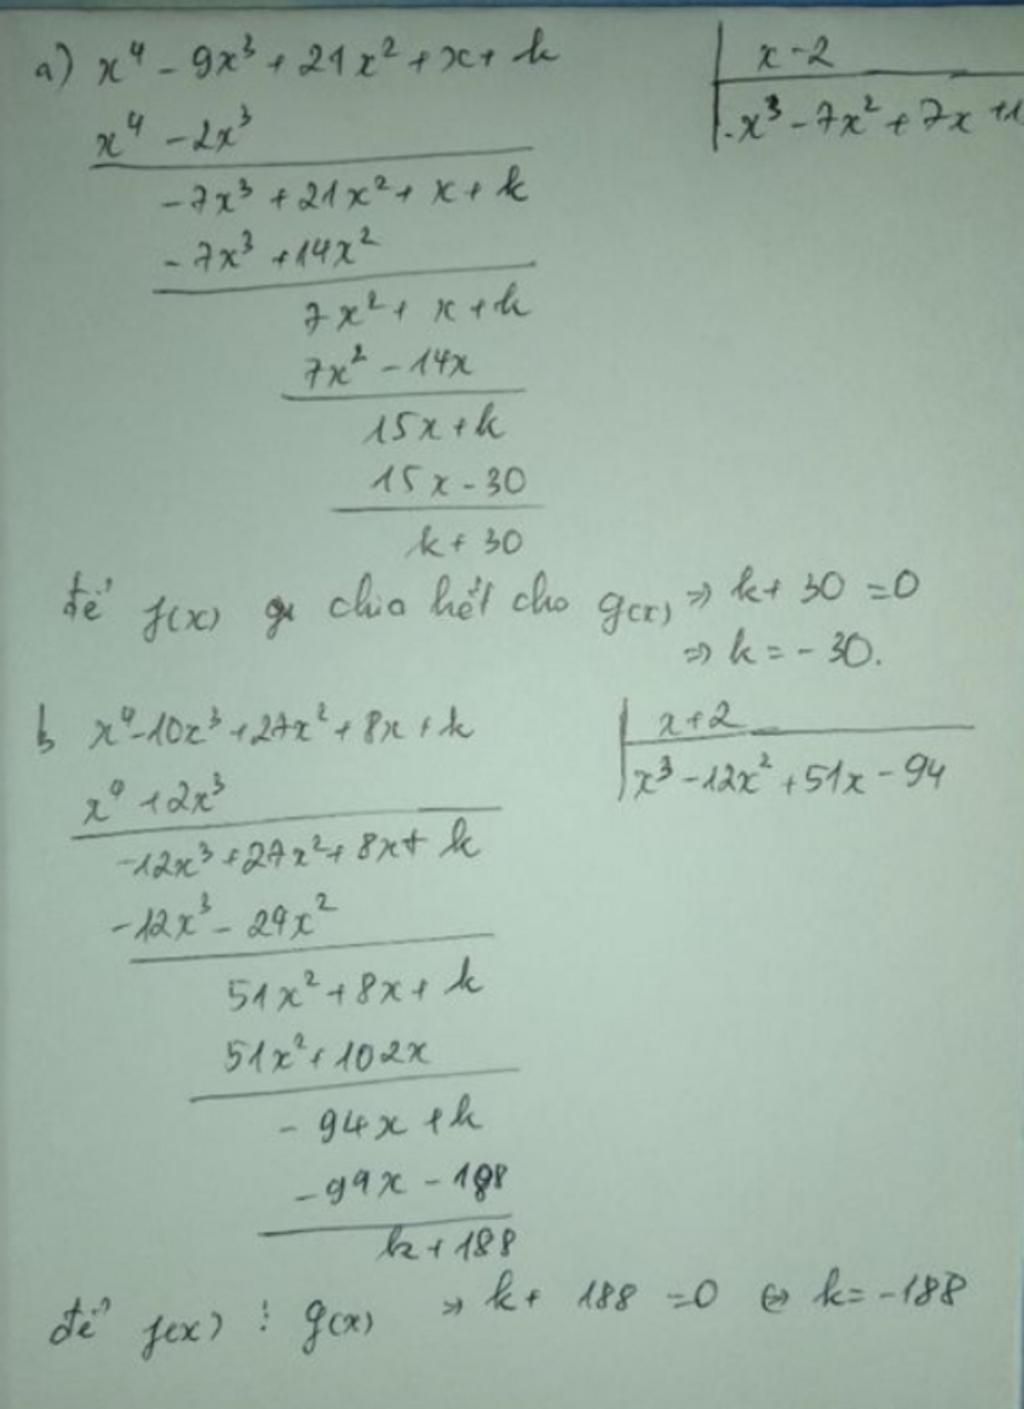 a) x⁴ - 9x³ + 21x² + x + k
x - 2
x⁴ - 2x³
x³ - 7x² + 7x + 1
-7x³ + 21x² + x + k
-7x³ + 14x²
7x² + x + k
7x² - 14x
15x + k
15x - 30
k + 30
để f(x) chia hết cho g(x) => k + 30 = 0
=> k = - 30.
b x⁴ - 10x³ + 27x² + 8x + k
x + 2
x⁴ + 2x³
x³ - 12x² + 51x - 94
-12x³ + 27x² + 8x + k
-12x³ - 24x²
51x² + 8x + k
51x² + 102x
- 94x + k
- 94x - 188
k + 188
để f(x) ⋮ g(x) => k + 188 = 0 <=> k = -188